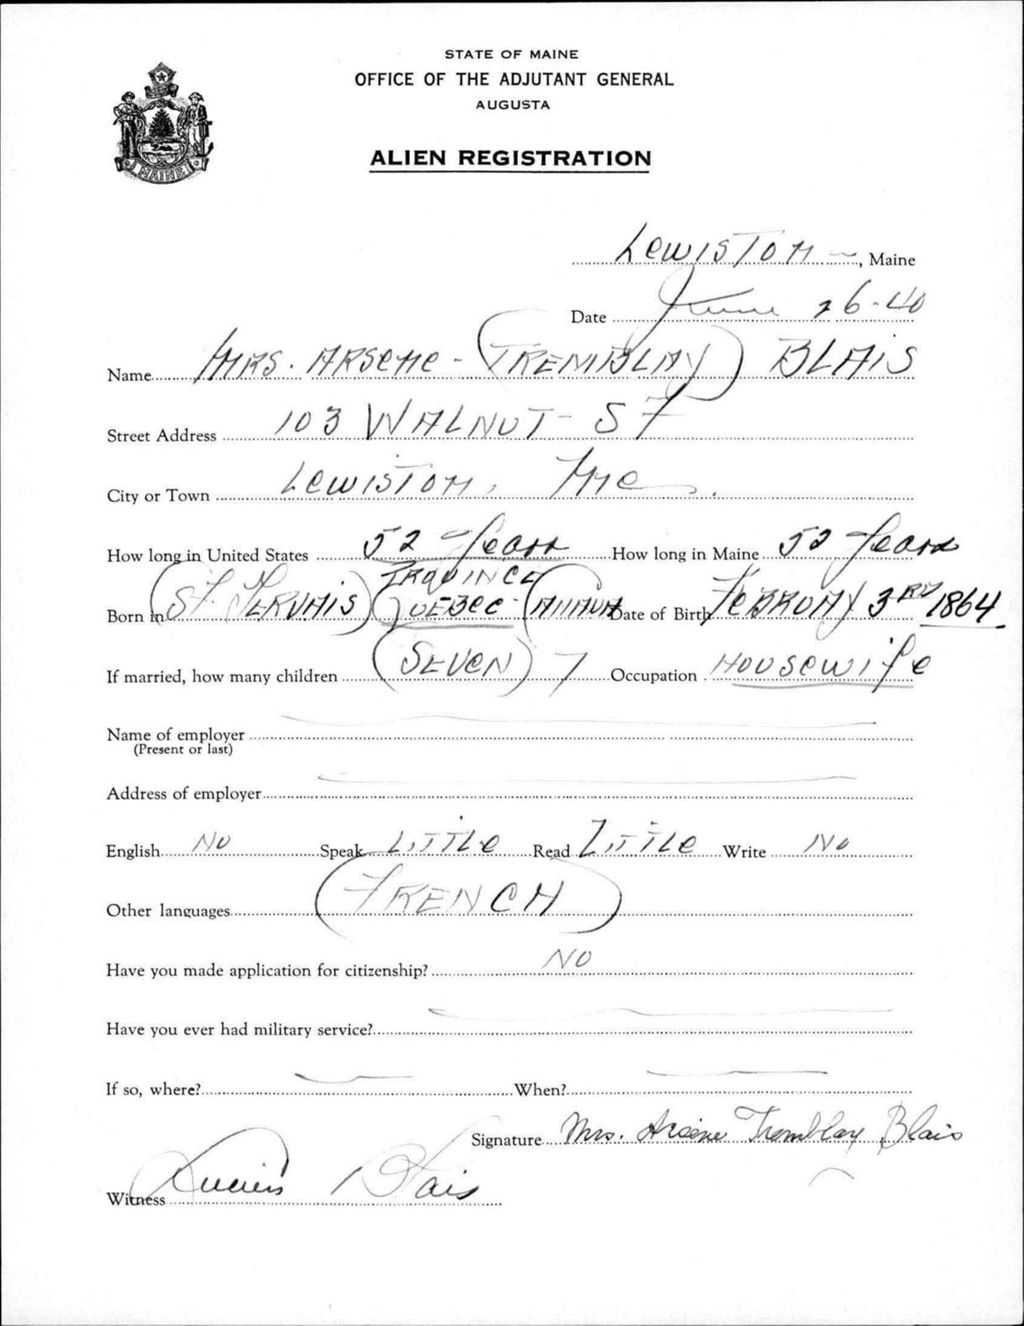 STATE OF MAINE
OFFICE OF THE ADJUTANT GENERAL
AUGUSTA
MAINE
ALIEN REGISTRATION
Lewiston, Maine
Date June 26-40
Name Mrs. Arsene - (Tremblay) Blais
Street Address 103 Walnut - St
City or Town Lewiston, Me.
How long in United States 52 - Years How long in Maine 52 Years
Province
Born in (St. Gervais) (Quebec - Date of Birth Februay 3RD 1864
If married, how many children (Seven) 7 Occupation Housewife
Name of employer
(Present or last)
Address of employer
English No Speak Little Read Little Write No
Other languages (French)
Have you made application for citizenship? No
Have you ever had military service?
If so, where? When?
Signature Mrs. Arsene Tremblay Blais
Witness Lucien Blais